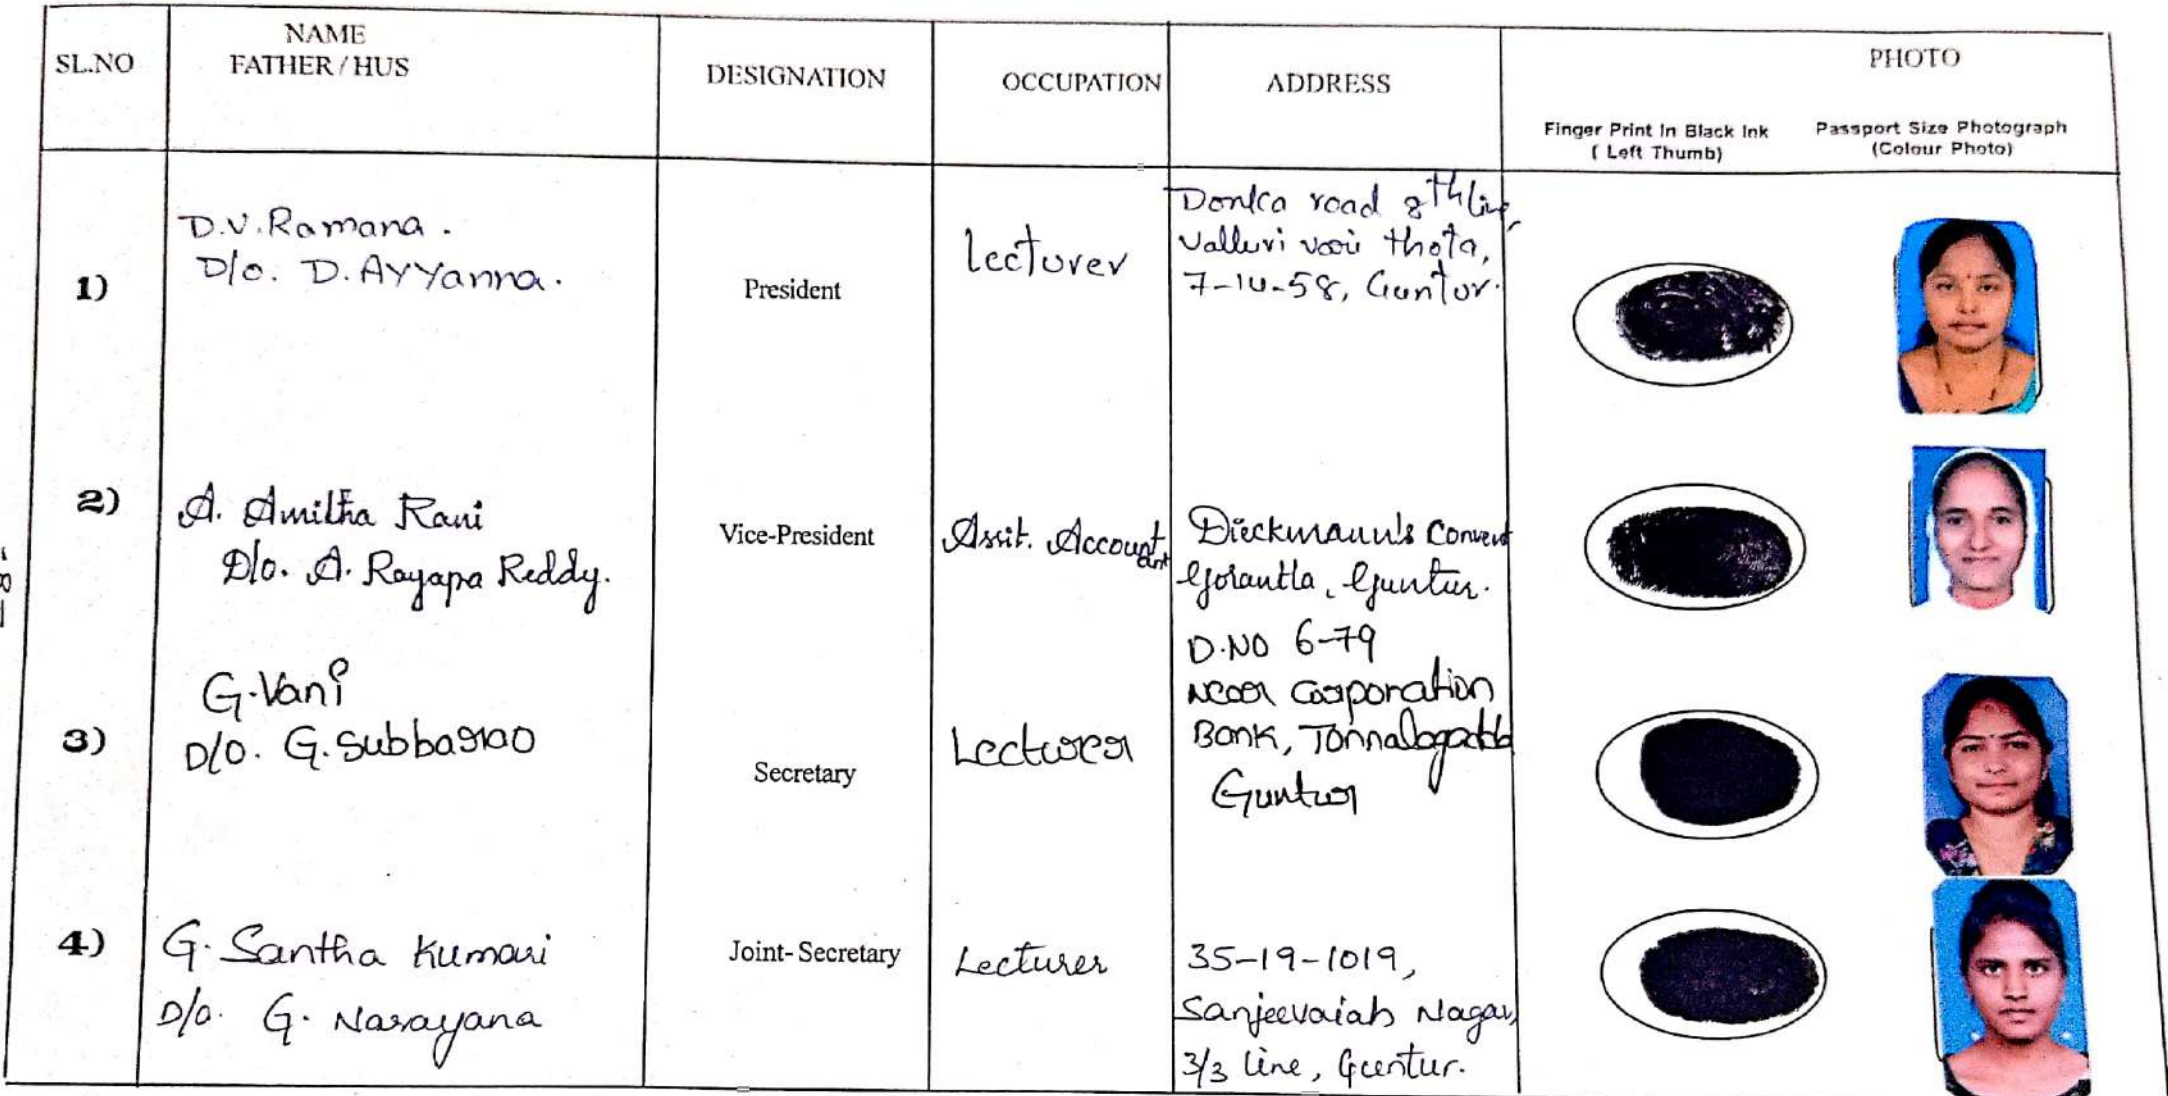 SL.NO
NAME
FATHER / HUS
DESIGNATION
OCCUPATION
ADDRESS
PHOTO
Finger Print In Black Ink
( Left Thumb)
Passport Size Photograph
(Colour Photo)
1)
D.V. Ramana.
D/o. D. AYYanna.
President
Lecturer
Donka road 8th line,
Valluri vaari thota,
7-10-58, Guntur.
2)
A. Amitha Rani
D/o. A. Rayapa Reddy.
Vice-President
Assit. Accountant
Dieckmann's Convent
Gorantla, Guntur.
3)
G. Vani
D/O. G. Subbarao
Secretary
Lecturer
D.NO 6-79
Near Corporation
Bank,
Guntur
4)
G. Santha Kumari
D/o. G. Narayana
Joint-Secretary
Lecturer
35-19-1019,
Sanjeevaiah Nagar,
3/3 line, Guntur.